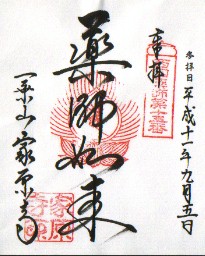 参拝日 平成十一年九月五日
奉拝
薬師如来
一乗山 家原寺
家原寺印